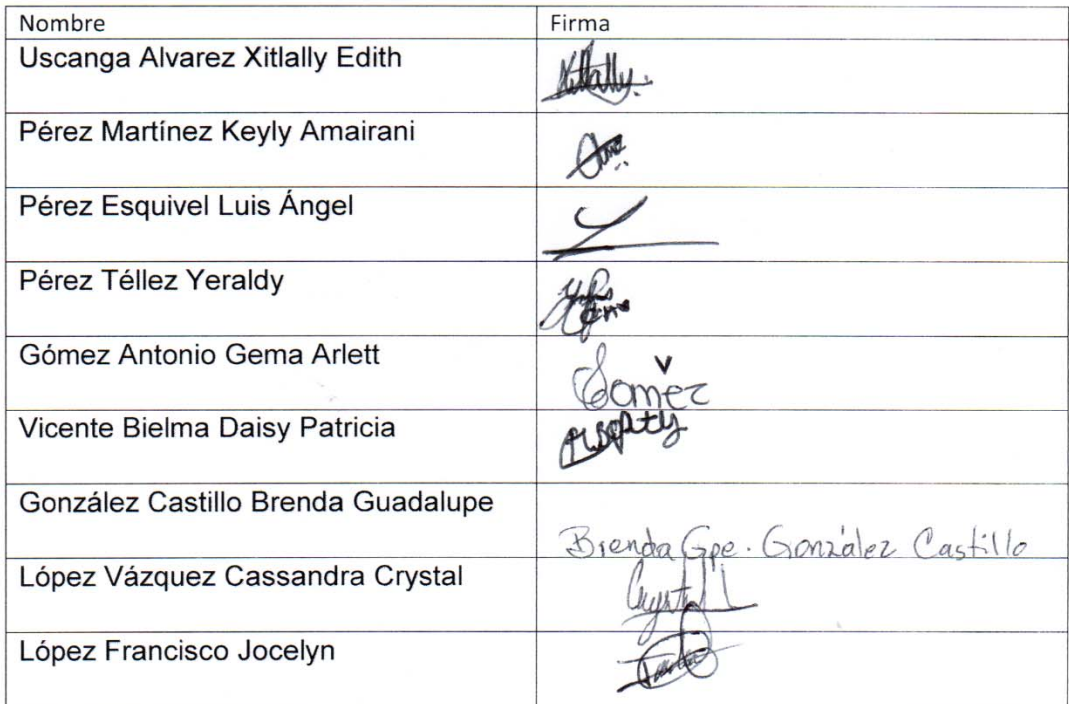 Nombre Firma
Uscanga Alvarez Xitlally Edith Xitlally
Pérez Martínez Keyly Amairani
Pérez Esquivel Luis Ángel
Pérez Téllez Yeraldy
Gómez Antonio Gema Arlett Gomez
Vicente Bielma Daisy Patricia
González Castillo Brenda Guadalupe Brenda Gpe. González Castillo
López Vázquez Cassandra Crystal Crystal
López Francisco Jocelyn